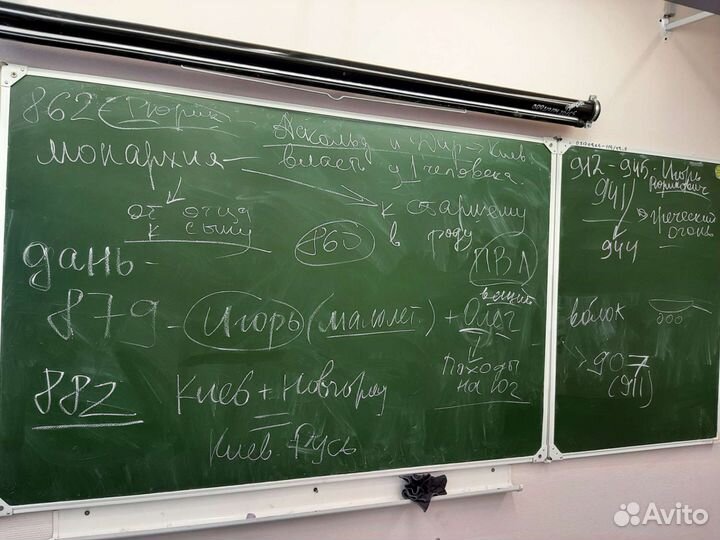 862 Рюрик
Аскольд и Дир → Киев
монархия - власть у 1 человека
от отца к старшему
к сыну 860 в роду
дань - ПВЛ
вещий
879 - Игорь (малолет.) + Олег
882 Киев + Новгород Походы
на юг
=
Киев. Русь
912 - 945 - Игорь
Рюрикович
941
Греческий
огонь
944
волок
907
(911)
Avito